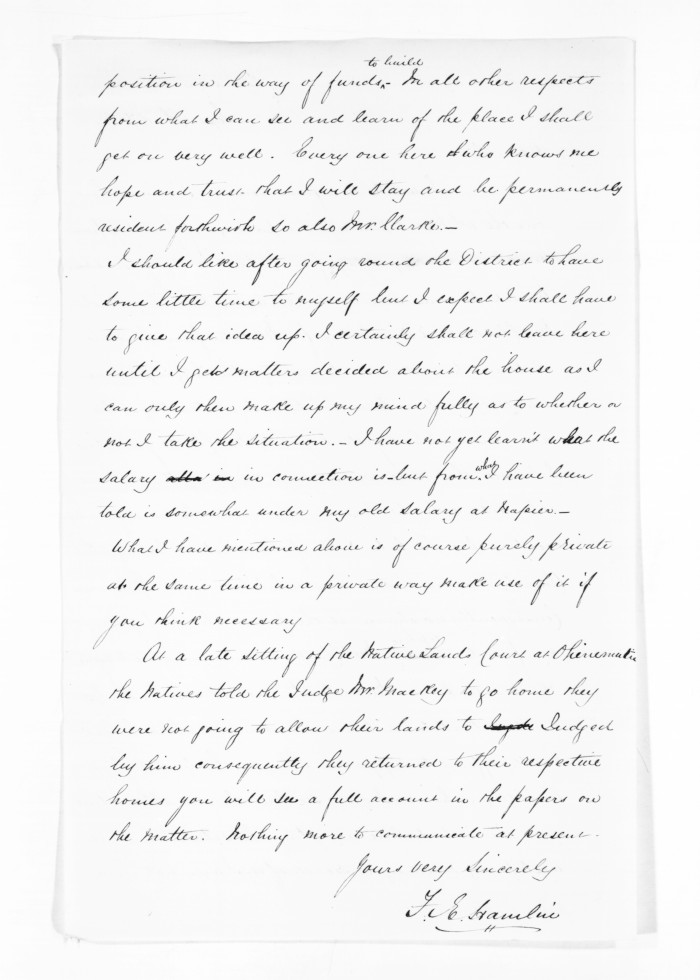 to build
position in the way of funds - In all other respects
from what I can see and learn of the place I shall
get on very well. Every one here who knows me
hope and trust that I will stay and be permanently
resident forthwith so also Mr. Clarke. -
I should like after going round the District to have
some little time to myself but I expect I shall have
to give that idea up. I certainly shall not leave here
until I get matters decided about the house as I
can only then make up my mind fully as to whether or
not I take the situation. - I have not yet learn't what the
salary in connection is - but from what I have been
told is somewhat under my old salary at Napier. -
What I have mentioned above is of course purely private
at the same time in a private way make use of it if
you think necessary
At a late sitting of the Native Lands Court at Ohinemutu
the Natives told the Judge Mr. Mackey to go home they
were not going to allow their lands to Judged
by him consequently they returned to their respective
homes you will see a full account in the papers on
the matter. Nothing more to communicate at present.
Yours very Sincerely
F. E. Hamlin